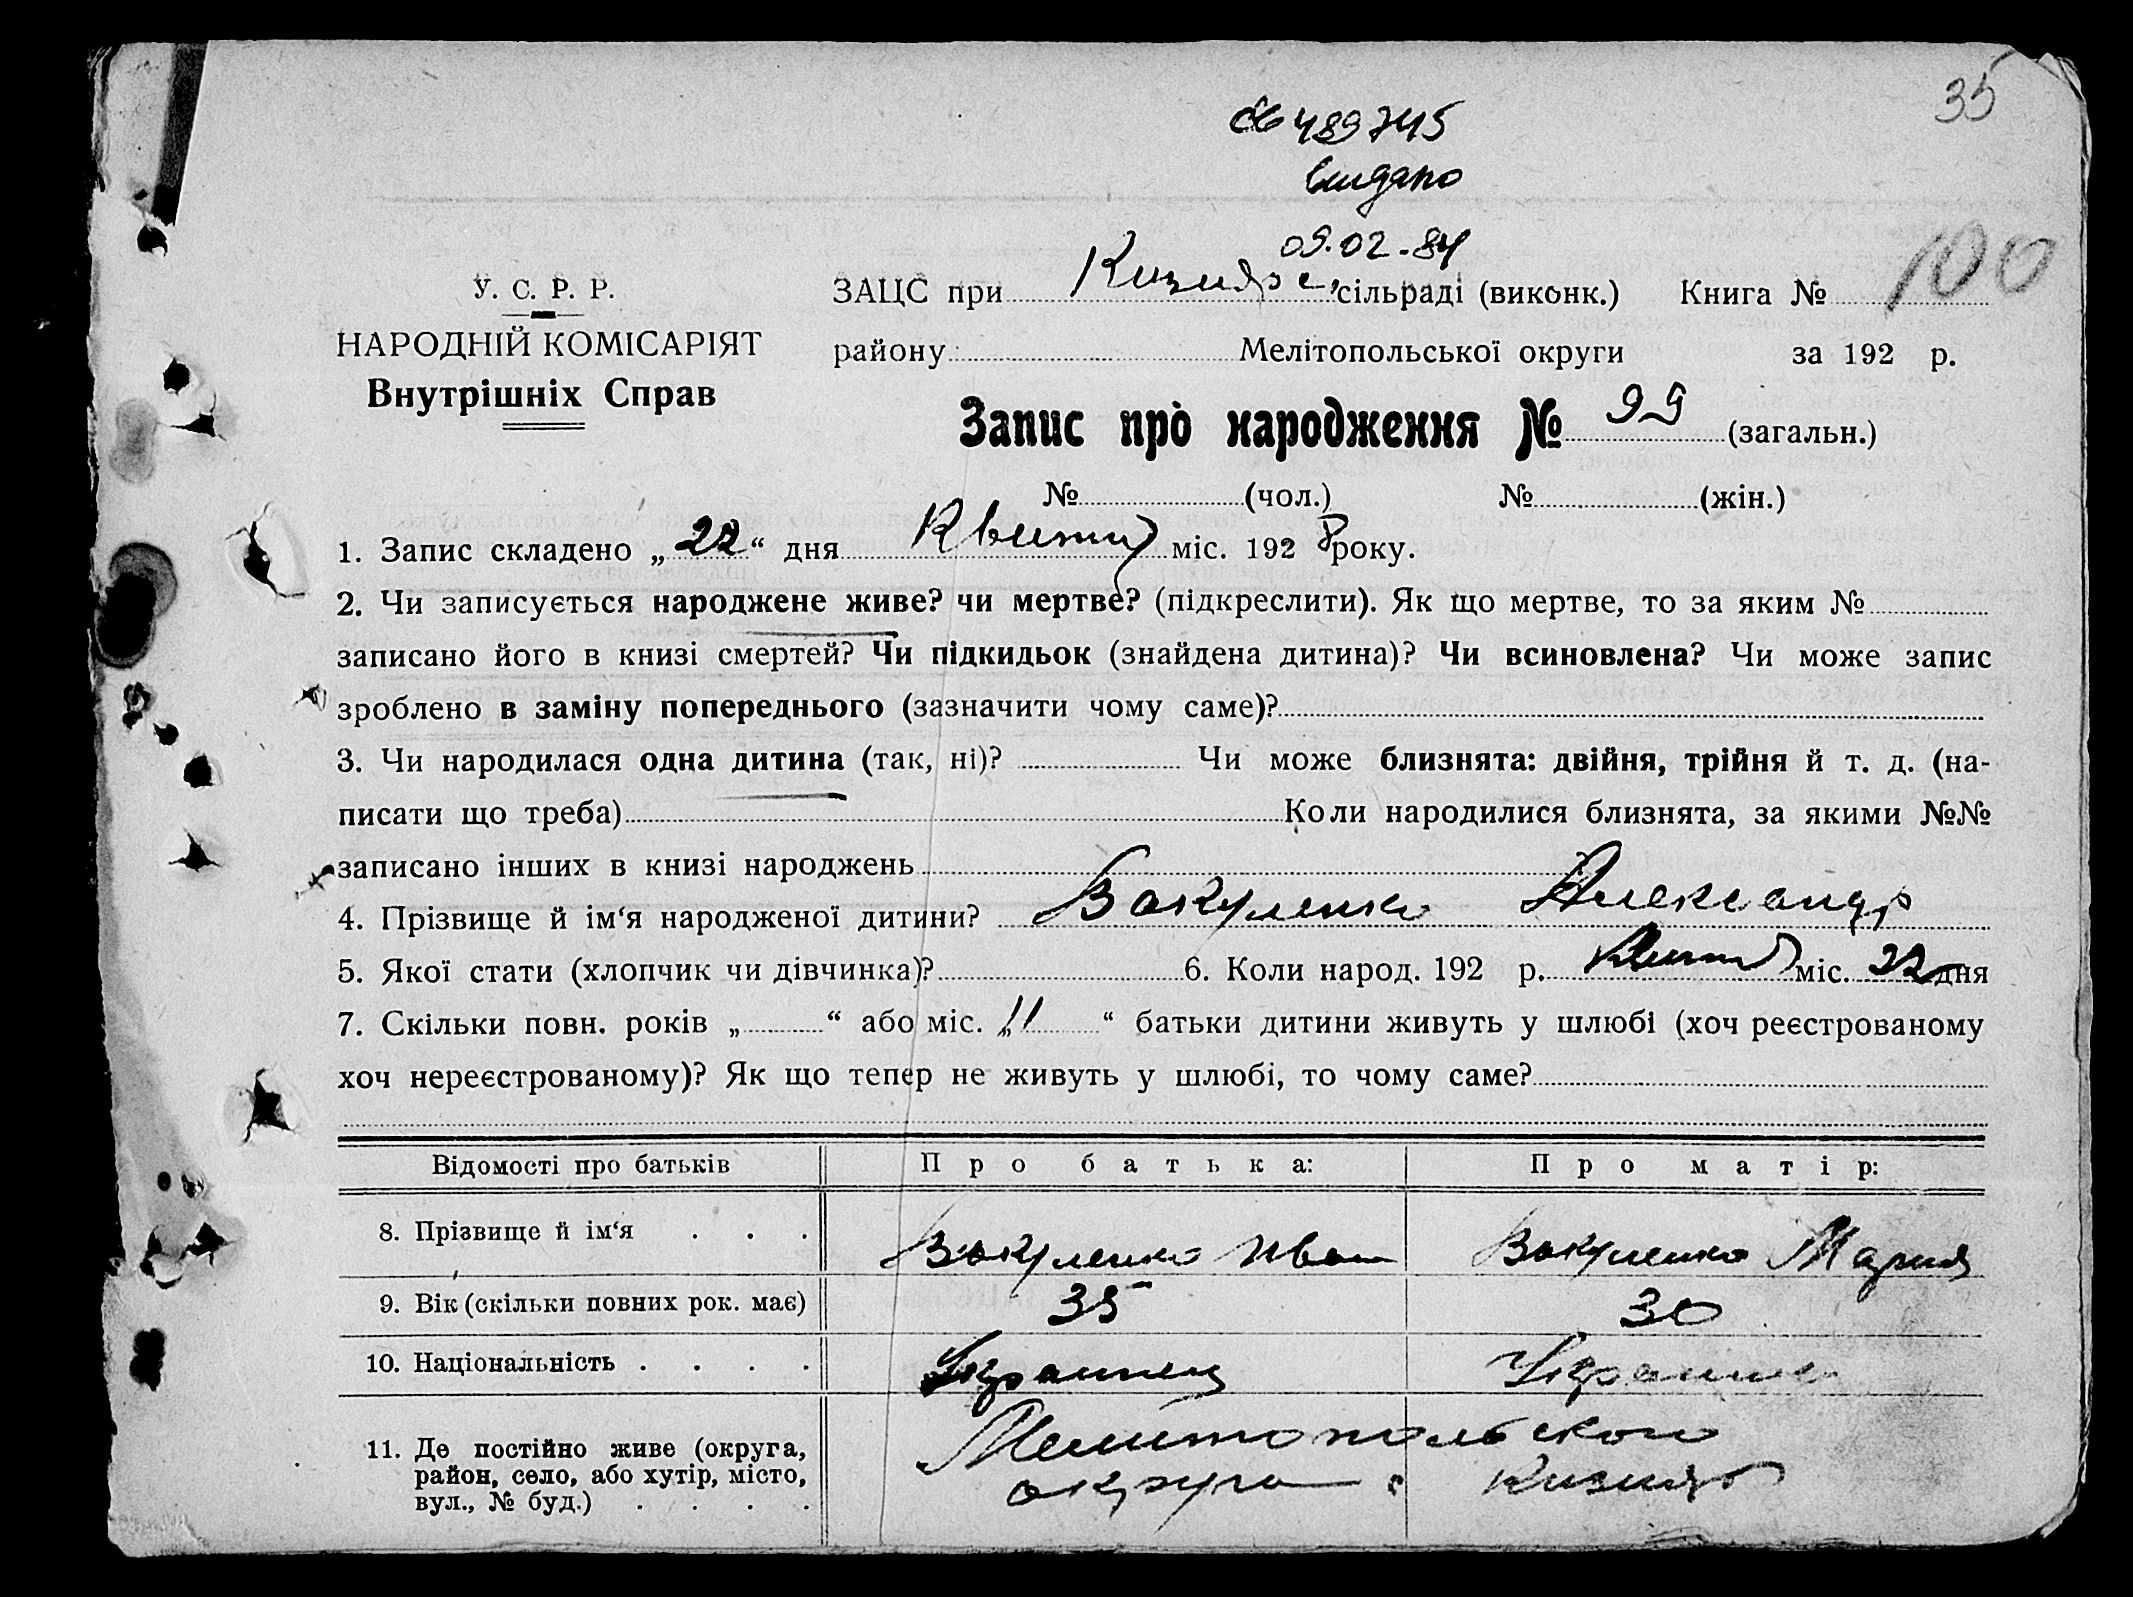 35
489745
видано
09.02.84
У. С. Р. Р.
НАРОДНІЙ КОМІСАРІЯТ
Внутрішніх Справ
ЗАЦС при Кизияр с, сільраді (виконк.) Книга № 100
району Мелітопольської округи за 192 р.
Запис про народження № 99 (загальн.)
№ (чол.) № (жін.)
1. Запис складено „22“ дня міс. 1928 року.
2. Чи записується народжене живе? чи мертве? (підкреслити). Як що мертве, то за яким №
записано його в книзі смертей? Чи підкидьок (знайдена дитина)? Чи всиновлена? Чи може запис
зроблено в заміну попереднього (зазначити чому саме)?
3. Чи народилася одна дитина (так, ні)? Чи може близнята: двійня, трійня й т. д. (на-
писати що треба) Коли народилися близнята, за якими №№
записано інших в книзі народжень
4. Прізвище й ім‘я народженої дитини? Вакуленко Александр
5. Якої стати (хлопчик чи дівчинка)? 6. Коли народ. 192 р. міс. 22 дня
7. Скільки повн. років „ “ або міс. „11“ батьки дитини живуть у шлюбі (хоч реєстрованому
хоч нереєстрованому)? Як що тепер не живуть у шлюбі, то чому саме?
Відомості про батьків Про батька: Про матір:
8. Прізвище й ім‘я . . . Вакуленко Иван Вакуленко Мария
9. Вік (скільки повних рок. має) 35 30
10. Національність . . . . Украинец
11. Де постійно живе (округа, Мелитопольского
район, село, або хутір, місто, округа с. Кизияр
вул., № буд.) . . . .